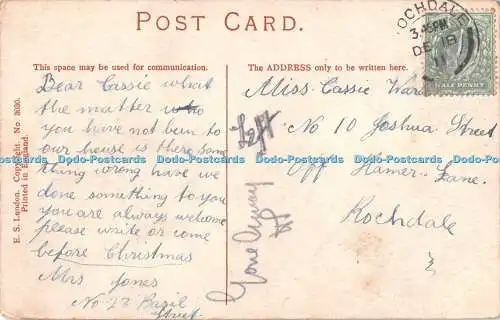 POST CARD.
This space may be used for communication.
The ADDRESS only to be written here.
Dear Cassie what
the matter who
you have not been to
our house is there some
thing wrong have we
done something to you
you are always welcome
please write or come
before Christmas
Mrs Jones
No 23 Basil
Street
Miss Cassie Ward
No 10 Joshua Street
Off Hamer Lane
Rochdale
Left
Gone Away
E. S. London. Copyright. No. 3020.
Printed in England.
ROCHDALE
DE 19
11
HALFPENNY
Dodo-Postcards Dodo-Postcards Dodo-Postcards Dodo-Postcards Dodo-Postcards Dodo-Postcards